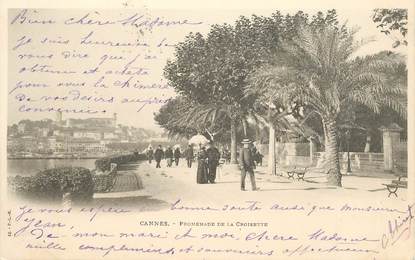 Bien chère Madame
je suis heureuse de
vous dire que j'ai
obtenu et acheté
pour vous la chimère
de vos désirs au prix
convenu
CANNES. - PROMENADE DE LA CROISETTE
je vous espère bonne santé ainsi que monsieur
Jean,
de mon mari et moi, chère Madame
mille compliments et souvenirs affectueux